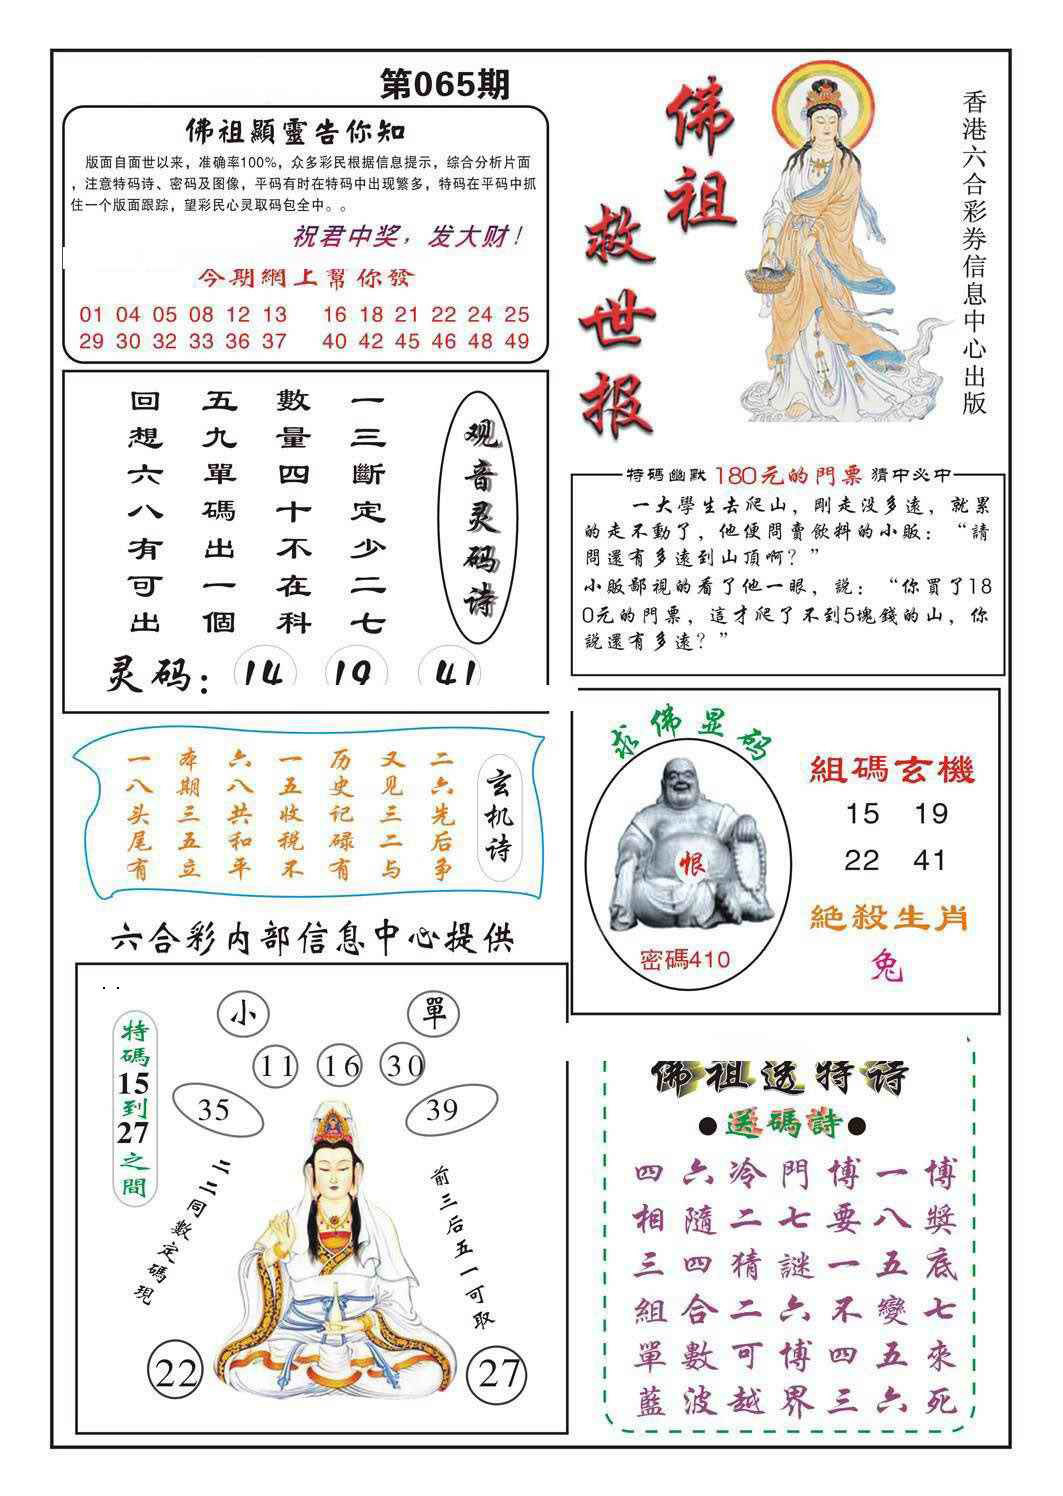 第065期
佛祖顯靈告你知
版面自面世以来，准确率100%，众多彩民根据信息提示，综合分析片面
，注意特码诗、密码及图像，平码有时在特码中出现繁多，特码在平码中抓
住一个版面跟踪，望彩民心灵取码包全中。。
祝君中奖，发大财！
今期網上幫你發
01 04 05 08 12 13 16 18 21 22 24 25
29 30 32 33 36 37 40 42 45 46 48 49
佛祖
救世报
香港六合彩券信息中心出版
观音灵码诗
一三斷定少二七
數量四十不在科
五九單碼出一個
回想六八有可出
灵码：14 19 41
特碼幽默 180元的門票 猜中必中
一大學生去爬山，剛走没多遠，就累
的走不動了，他便問賣飲料的小販：“請
問還有多遠到山頂啊？”
小販鄙視的看了他一眼，説：“你買了18
0元的門票，這才爬了不到5塊錢的山，你
説還有多遠？”
玄机诗
二六先后争
又见三二与
历史记碌有
一五收税不
六八共和平
本期三五立
一八头尾有
求佛显码
恨
密碼410
組碼玄機
15 19
22 41
絕殺生肖
兔
六合彩内部信息中心提供
特碼15到27之間
小
單
11 16 30
35
39
二二同數定碼現
前三后五一可取
22
27
佛祖透特诗
●送碼詩●
四六冷門博一博
相隨二七要八獎
三四猜謎一五底
組合二六不變七
單數可博四五來
藍波越界三六死